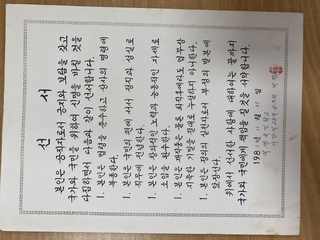 선 서
본인은 공직자로서 긍지와 보람을 갖고
국가와 국민을 위하여 신명을 바칠 것을
다짐하면서 다음과 같이 선서합니다.
1. 본인은 법령을 준수하고 상사의 명령에
복종한다.
1. 본인은 국민의 편에 서서 정직과 성실로
직무에 전념한다.
1. 본인은 창의적인 노력과 능동적인 자세로
소임을 완수한다.
1. 본인은 재직중은 물론 퇴직후에라도 업무상
지득한 기밀을 절대로 누설하지 아니한다.
1. 본인은 정의의 실천자로서 부정의 발본에
앞장선다.
위에서 선서한 사항에 대하여는 끝까지
국가와 국민에게 책임을 질것을 서약합니다.
198 년 월 일